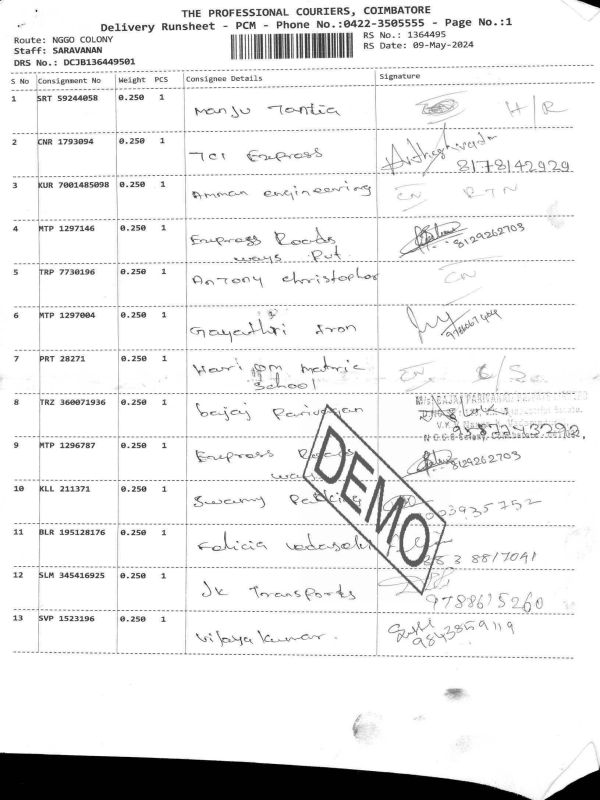 THE PROFESSIONAL COURIERS, COIMBATORE
Delivery Runsheet - PCM - Phone No.:0422-3505555 - Page No.:1
Route: NGGO COLONY
RS No.: 1364495
Staff: SARAVANAN
RS Date: 09-May-2024
DRS No.: DCJB136449501
S No Consignment No Weight PCS Consignee Details Signature
1 SRT 59244058 0.250 1 Manju Tantia H/R
2 CNR 1793094 0.250 1 TCI Express
8178142929
3 KUR 7001485098 0.250 1 Amman engineering RTN
4 MTP 1297146 0.250 1 Express Roads
ways Pvt. 8129262703
5 TRP 7730196 0.250 1 Antony christopher
6 MTP 1297004 0.250 1 Gayathri Iron
7 PRT 28271 0.250 1 Hari om matric
School
8 TRZ 360071936 0.250 1 bajaj Parivahan
9 MTP 1296787 0.250 1 Express Roads
ways 8129262703
10 KLL 211371 0.250 1 Swamy Packing
11 BLR 195128176 0.250 1 Felicia
12 SLM 345416925 0.250 1 Jk Transports
9788615260
13 SVP 1523196 0.250 1 Vijayakumar.
9843859119
DEMO